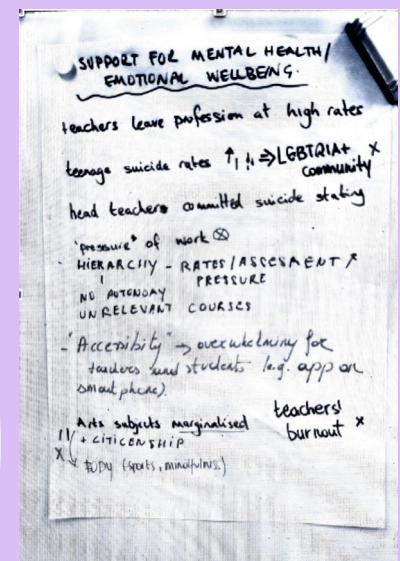 SUPPORT FOR MENTAL HEALTH/
EMOTIONAL WELLBEING.
teachers leave profession at high rates
teenage suicide rates ↑, !! ⇒ LGBTQIA+ x
community
head teachers committed suicide stating
"pressure" of work ⊗
- HIERARCHY - RATES/ASSESMENT ↗
PRESSURE
NO AUTONOMY
UNRELEVANT COURSES
- "Accesibility" → overwhelming for
teachers and students (e.g. app on
smart phone).
Arts subjects marginalised
+ CITICENSHIP
BODY (sports, mindfulness)
teachers'
burnout x